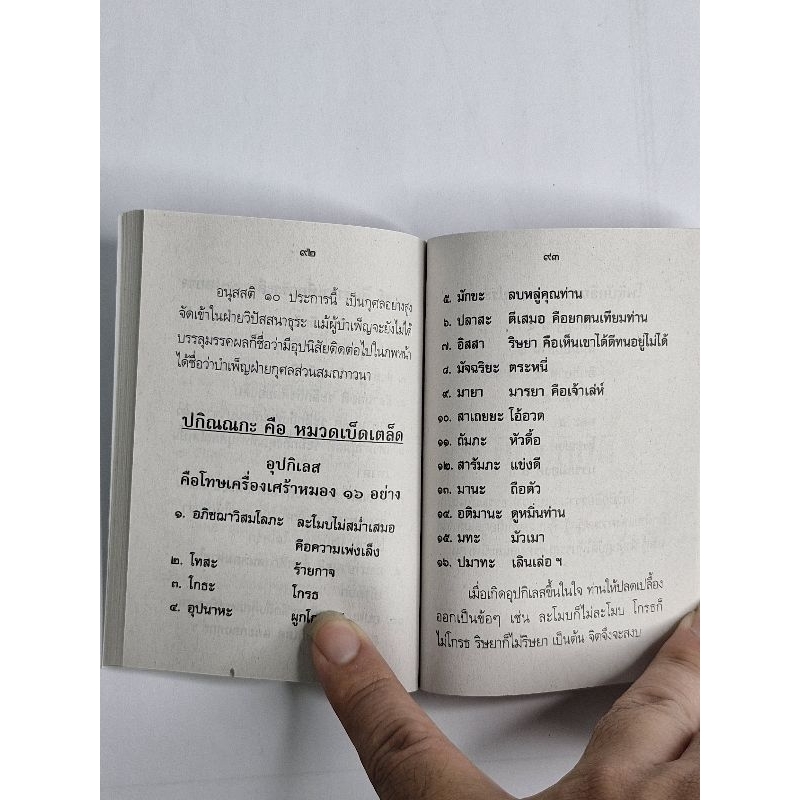 ๙๒
อนุสสติ ๑๐ ประการนี้ เป็นกุศลอย่างสูง
จัดเข้าในฝ่ายวิปัสสนาธุระ แม้ผู้บำเพ็ญจะยังไม่ได้
บรรลุมรรคผลก็ชื่อว่ามีอุปนิสัยติดต่อไปในภพหน้า
ได้ชื่อว่าบำเพ็ญฝ่ายกุศลส่วนสมถภาวนา
ปกิณณกะ คือ หมวดเบ็ดเตล็ด
อุปกิเลส
คือโทษเครื่องเศร้าหมอง ๑๖ อย่าง
๑. อภิชฌาวิสมโลภะ ละโมบไม่สม่ำเสมอ
คือความเพ่งเล็ง
๒. โทสะ ร้ายกาจ
๓. โกธะ โกรธ
๔. อุปนาหะ
๙๓
๕. มักขะ ลบหลู่คุณท่าน
๖. ปลาสะ ตีเสมอ คือยกตนเทียมท่าน
๗. อิสสา ริษยา คือเห็นเขาได้ดีทนอยู่ไม่ได้
๘. มัจฉริยะ ตระหนี่
๙. มายา มารยา คือเจ้าเล่ห์
๑๐. สาเถยยะ โอ้อวด
๑๑. ถัมภะ หัวดื้อ
๑๒. สารัมภะ แข่งดี
๑๓. มานะ ถือตัว
๑๔. อติมานะ ดูหมิ่นท่าน
๑๕. มทะ มัวเมา
๑๖. ปมาทะ เลินเล่อ ฯ
เมื่อเกิดอุปกิเลสขึ้นในใจ ท่านให้ปลดเปลื้อง
ออกเป็นข้อๆ เช่น ละโมบก็ไม่ละโมบ โกรธก็
ไม่โกรธ ริษยาก็ไม่ริษยา เป็นต้น จิตจึงจะสงบ